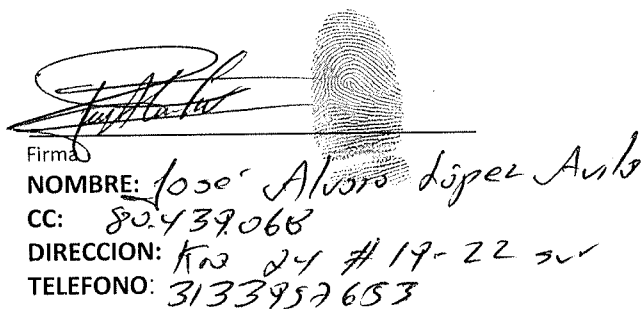 Firma
NOMBRE: José Alvaro López Avila
CC: 80.439.068
DIRECCION: Kra 24 # 19-22 sur
TELEFONO: 3133957653